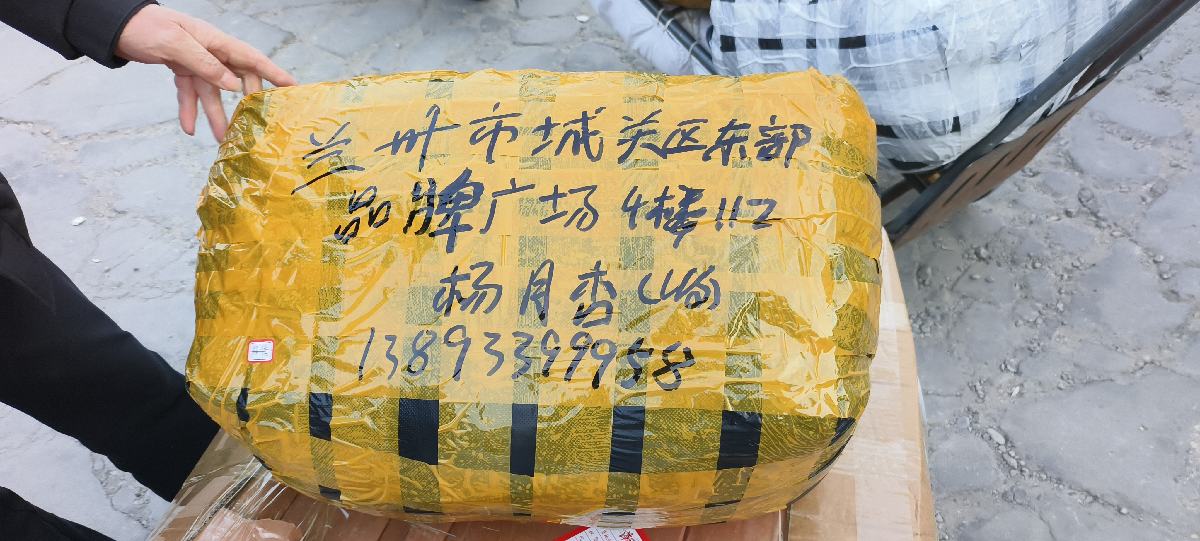 兰州市城关区东部
品牌广场4楼112
杨月杏(1份)
13893399958